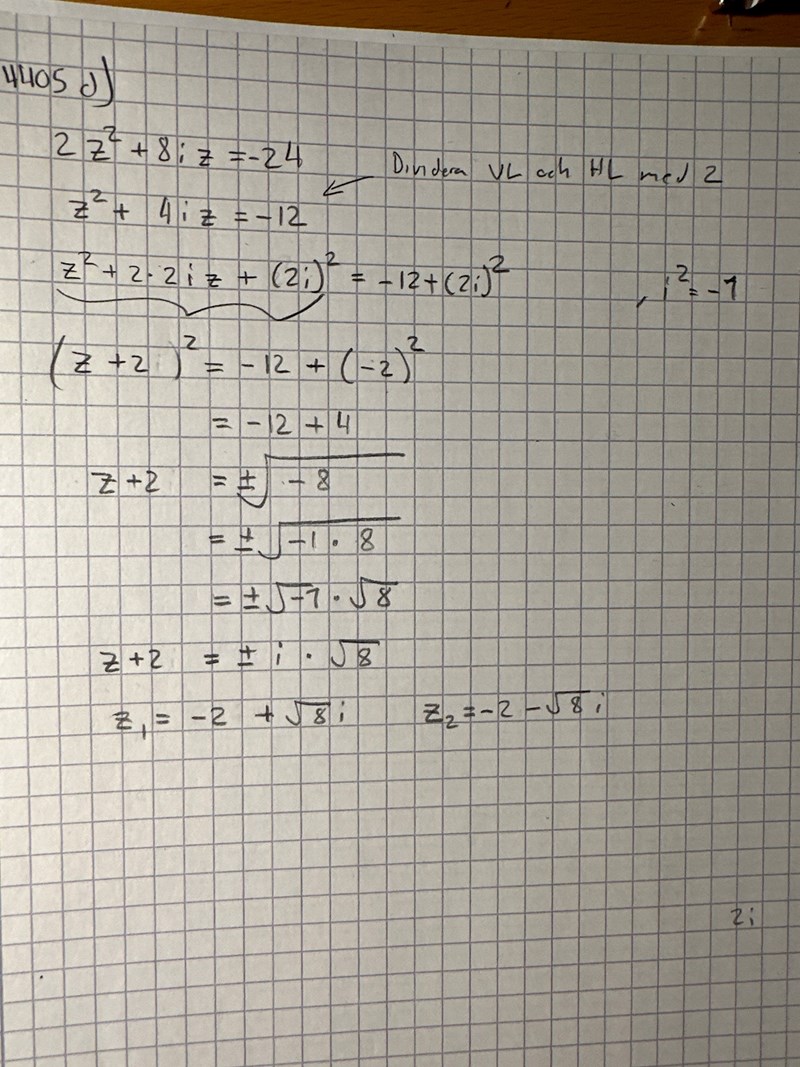 4405 d)
2z² + 8iz = -24
Dividera VL och HL med 2
z² + 4iz = -12
z² + 2·2iz + (2i)² = -12 + (2i)² , i² = -1
(z + 2 )² = -12 + (-2)²
= -12 + 4
z + 2 = ±√-8
= ±√-1 · 8
= ±√-1 · √8
z + 2 = ± i · √8
z₁ = -2 + √8 i z₂ = -2 - √8 i
2i